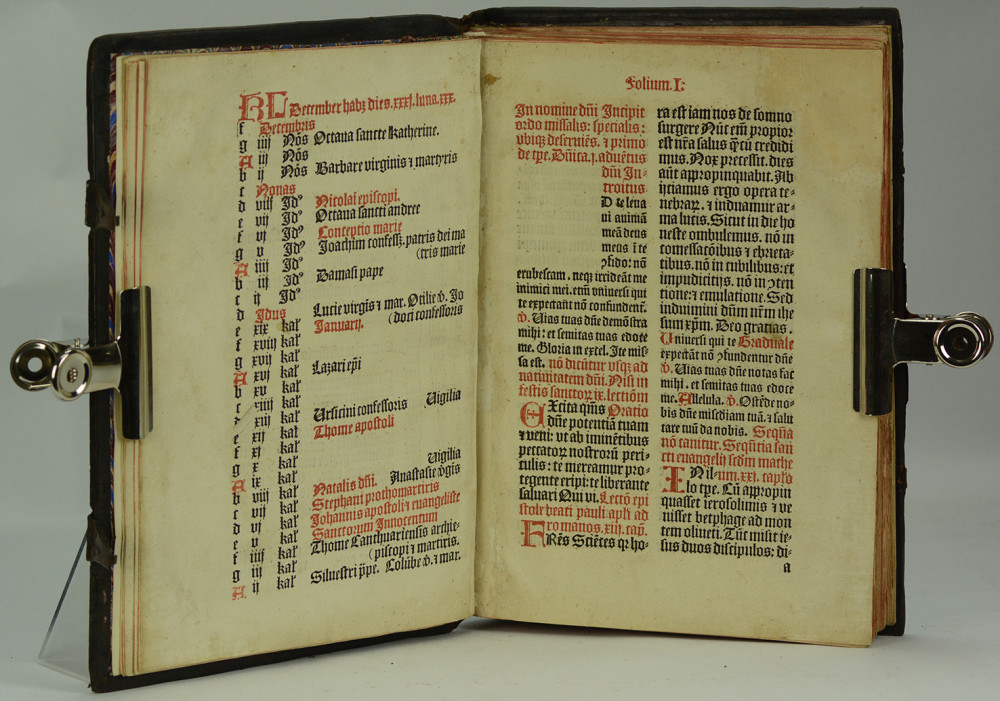 KL December habȝ dies .xxxj. luna .xxx.
f Decembris
g iiij Nōs Octaua sancte Katherine.
A iij Nōs
b ij Nōs Barbare virginis ⁊ martyris
c Nonas
d viij Jdꝰ Nicolai episcopi.
e vij Jdꝰ Octaua sancti andree
f vj Jdꝰ Conceptio marie
g v Jdꝰ Joachim confess. patris dei ma
A iiij Jdꝰ (tris marie
b iij Jdꝰ Damasi pape
c ij Jdꝰ
d Jdus Lucie virgīs ⁊ mar. Otilie v̄. Jo
e xix kal Januarij. (doci confessoris
f xviij kal
g xvij kal Lazari epi
A xvj kal
b xv kal
c xiiij kal Ursicini confessoris Uigilia
xiij kal Thome apostoli
e xij kal
f xj kal
g x kal Uigilia
A ix kal Anastasie v̄gis
b viij kal Natalis dn̄i.
c vij kal Stephani prothomartiris
d vj kal Johannis apostoli ⁊ euangeliste
e v kal Sanctorum Innocentum
f iiij kal Thome Canthuariensis archie-
g iij kal (piscopi ⁊ martiris.
A ij kal Siluestri pp̄e. Colūbe v̄. ⁊ mar.
Folium. I.
In nomine dn̄i Incipit
ordo missalis: specialis:
vbiqȝ deseruiēs. ⁊ primo
de tp̄e. Dn̄ica .j. aduētus
dn̄i In-
troitus
D te leua
ui animā
meā deus
meus ī te
ↄfido: nō
erubescam. neqȝ irrideāt me
inimici mei. etm̄ vniuersi qui
te expectāt nō confundent̄.
v̄. Uias tuas dn̄e demōstra
mihi: et semitas tuas edoce
me. Gloria in excel. Ite mis-
sa est. nō dicūtur vsqȝ ad
natiuitatem dn̄i. Nisi in
festis sanctoꝝ ix. lectionū
EXcita qm̄s Oratio
dn̄e potentiā tuam
⁊ veni: vt ab iminētibus
peccatoꝝ nostroꝝ peri-
culis: te mereamur pro-
tegente eripi: te liberante
saluari Qui vi. Lectō epi
stole beati pauli apl̄i ad
romanos. xiij. cap.
FRēs Sciētes qꝛ ho-
ra est iam nos de somno
surgere Nūc em̄ propior
est nr̄a salus qͣ cū credidi
mus. Nox precessit. dies
aūt appropinquabit. Ab
ijciamus ergo opera te-
nebraꝝ. ⁊ induamur ar-
ma lucis. Sicut in die ho
neste ambulemus. nō in
comessatōibus ⁊ ebrieta-
tibus. nō in cubilibus: et
impudicitijs. nō in ↄten
tione: ⁊ emulatione. Sed
induimini dūm nr̄m ihe
sum xp̄m. Deo gratias.
Uniuersi qui te Graduale
expectāt nō ↄfundentur dn̄e
v̄. Uias tuas dn̄e notas fac
mihi. et semitas tuas edoce
me. Allelula. v̄. Ostēde no-
bis dn̄e misc̄diam tuā. ⁊ salu
tare tuū da nobis. Seqn̄a
nō canitur. Seqn̄tia san
cti euangelij scdm̄ mathe
um. xxj. capl̓o
IN il-
lo tp̄e. Cū appropin
quasset ierosolimis ⁊ ve
nisset betphage ad mon
tem oliueti. Tūc misit ie-
sus duos discipulos: di-
a